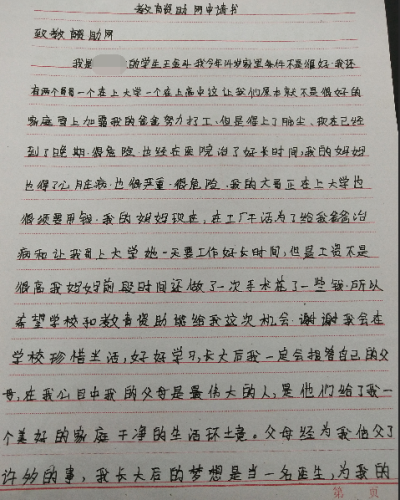 教育资助网申请书
致教育资助网
我是 的学生王金斗我今年14岁家里条件不是很好.我还
有两个哥哥一个在上大学一个在上高中这让我们原本就不是很好的
家庭雪上加霜我的爸爸努力打工、但是得上了肺尘、现在已经
到了晚期.很危险.也经在医院治了好长时间,我的妈妈
也得了心脏病.也很严重.很危险.我的大哥正在上大学也
很须要用钱.我的妈妈现在.在工厂干活为了给我爸爸治
病和让我哥上大学她一天要工作好长时间,但是工资不是
很高我妈妈前段时间还做了一次手术花了一些钱.所以
希望学校和教育资助 给我这次机会.谢谢我会在
学校珍惜生活,好好学习,长大后我一定会担着自己的父
母,在我心目中我的父母是最伟大的人,是他们给了我一
个美好的家庭干净的生活环境。父母经为我付父了
许多的事,我长大后的梦想是当一名医生,为我的
第 页